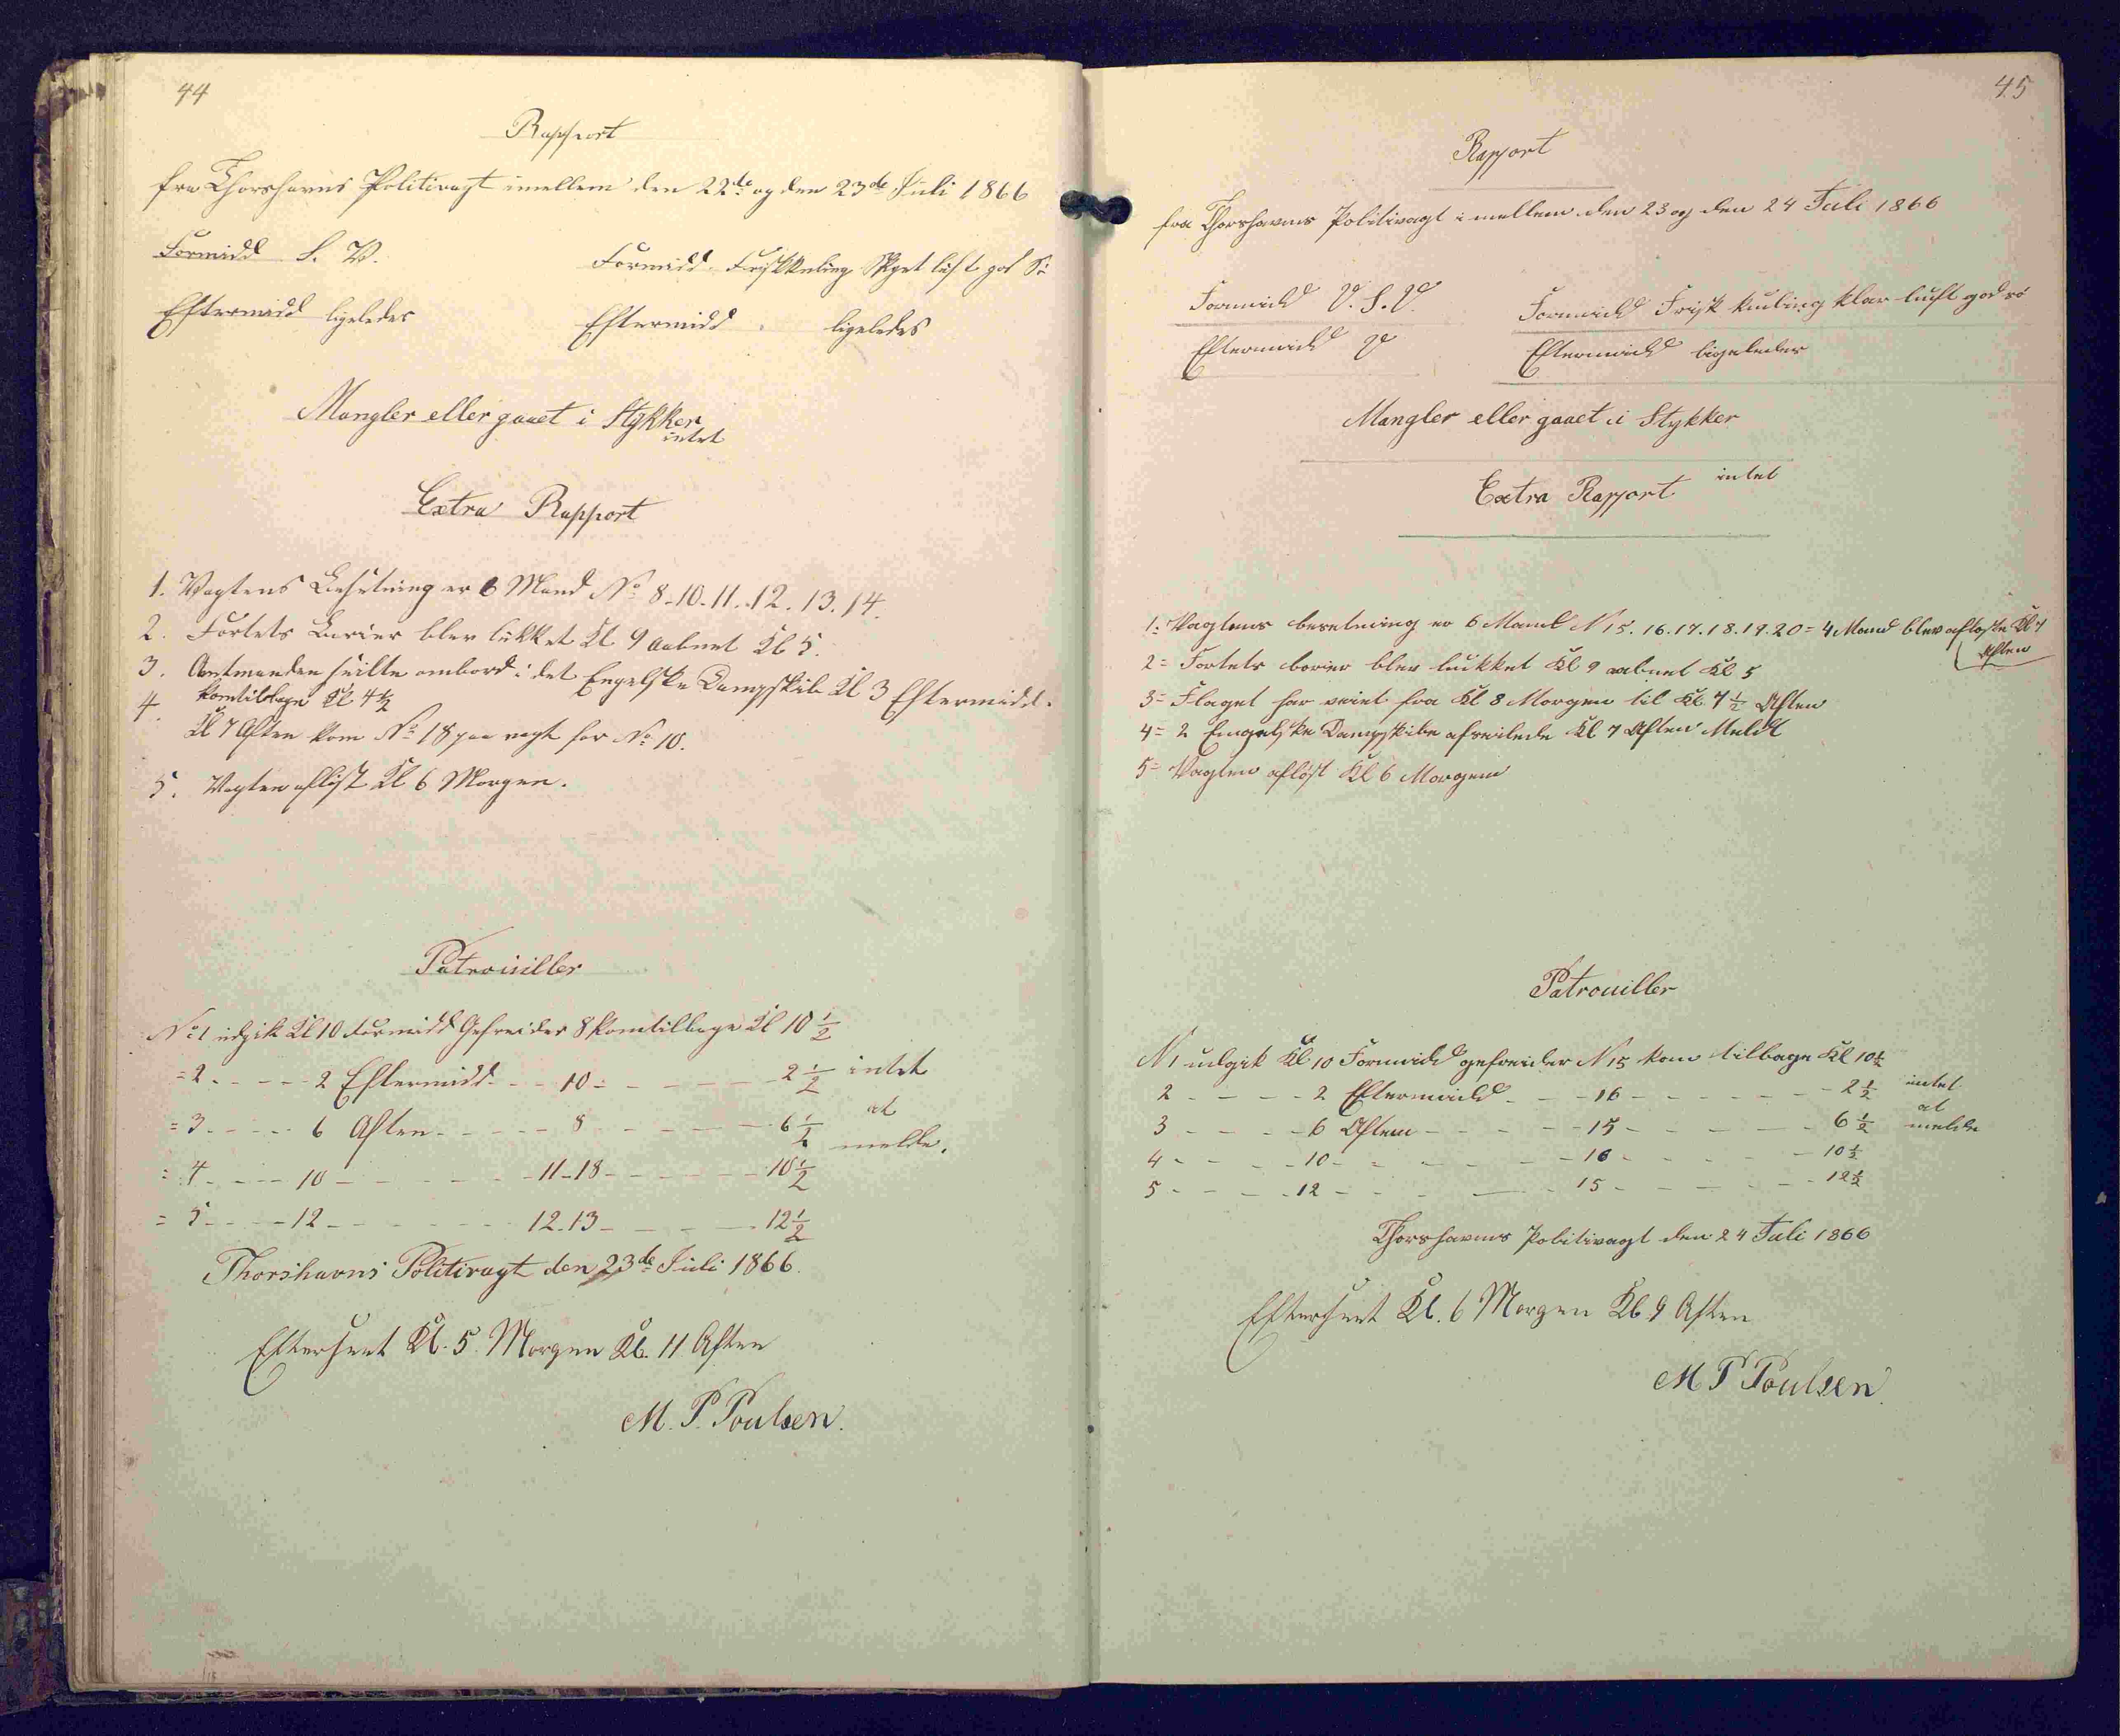 44
Rapport
fra Thorshavns Politivagt imellem den 22de og den 23de Juli 1866
Formidd S. V.
Formidd Friskkuling Skyet luft god Sö
Eftermidd ligeledes
Eftermidd ligeledes
Mangler eller gaaet i Stykker
intet
Extra Rapport
1. Vagtens Besetning er 6 Mand No 8-10-11-12.13.14.
2. Fortets Barier blev lukket Kl 9 aabnet Kl 5.
3. Amtmanden seilte ombord i det Engelske Dampskib Kl 3 Eftermidd.
komtilbage Kl 4½
4. Kl 7 Aften kom No 18 paa vagt for No 10.
5. Vagten aflöst Kl 6 Morgen.
Patrouiller
No 1 udgik Kl 10 Formidd Gefreider 8 komtilbage Kl 10½
=2 - - - - 2 Eftermidd - - 10 - - - - - 2½ intet
=3 - - - - 6 Aften - - - - 8 - - - - - 6½ at
melde.
=4 - - - - 10 - - - - - 11-18 - - - - - 10½
=5 - - - - 12 - - - - - 12.13 - - - - 12½
Thorshavns Politivagt den 23de Juli 1866.
Efterseet Kl. 5 Morgen Kl. 11 Aften
M. P. Poulsen.
45
Rapport
fra Thorshavns Politivagt imellem den 23 og den 24 Juli 1866
Formidd V. S. V.
Formidd Frisk kuling klar luft god sö
Eftermidd V
Eftermidd ligeledes
Mangler eller gaaet i Stykker
intet
Extra Rapport
1= Vagtens besetning er 6 Mand N 15. 16. 17. 18. 19. 20 = 4 Mand blev aflöste Kl 7
Aften
2= Fortets barier blev lukket Kl 9 aabnet Kl 5
3= Flaget har veiet fra Kl 8 Morgen til Kl. 7½ Aften
4= 2 Engelske Dampskibe afseilede Kl 7 Aften Meldt
5= Vagten aflöst Kl 6 Morgen
Patrouiller
N 1 udgik Kl 10 Formidd gefreider N 15 kom tilbage Kl 10½
2 - - - - 2 Eftermidd - - - 16 - - - - - 2½ intet
at
3 - - - - 6 Aften - - - - - 15 - - - - - 6½ melde
4 - - - - 10 - - - - - - 16 - - - - - 10½
5 - - - - 12 - - - - - 15 - - - - - 12½
Thorshavns Politivagt den 24 Juli 1866
Efterseet Kl. 6 Morgen Kl. 9 Aften
M P Poulsen.